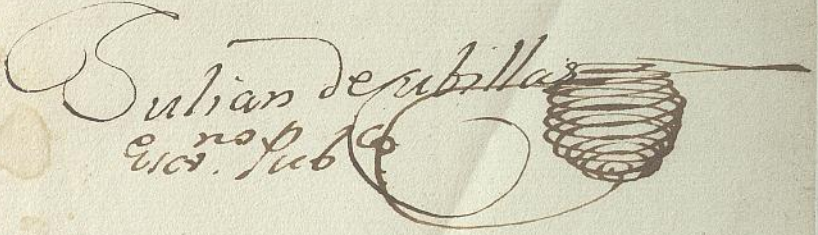 Julian de Cubillas
Escr.no Pubco